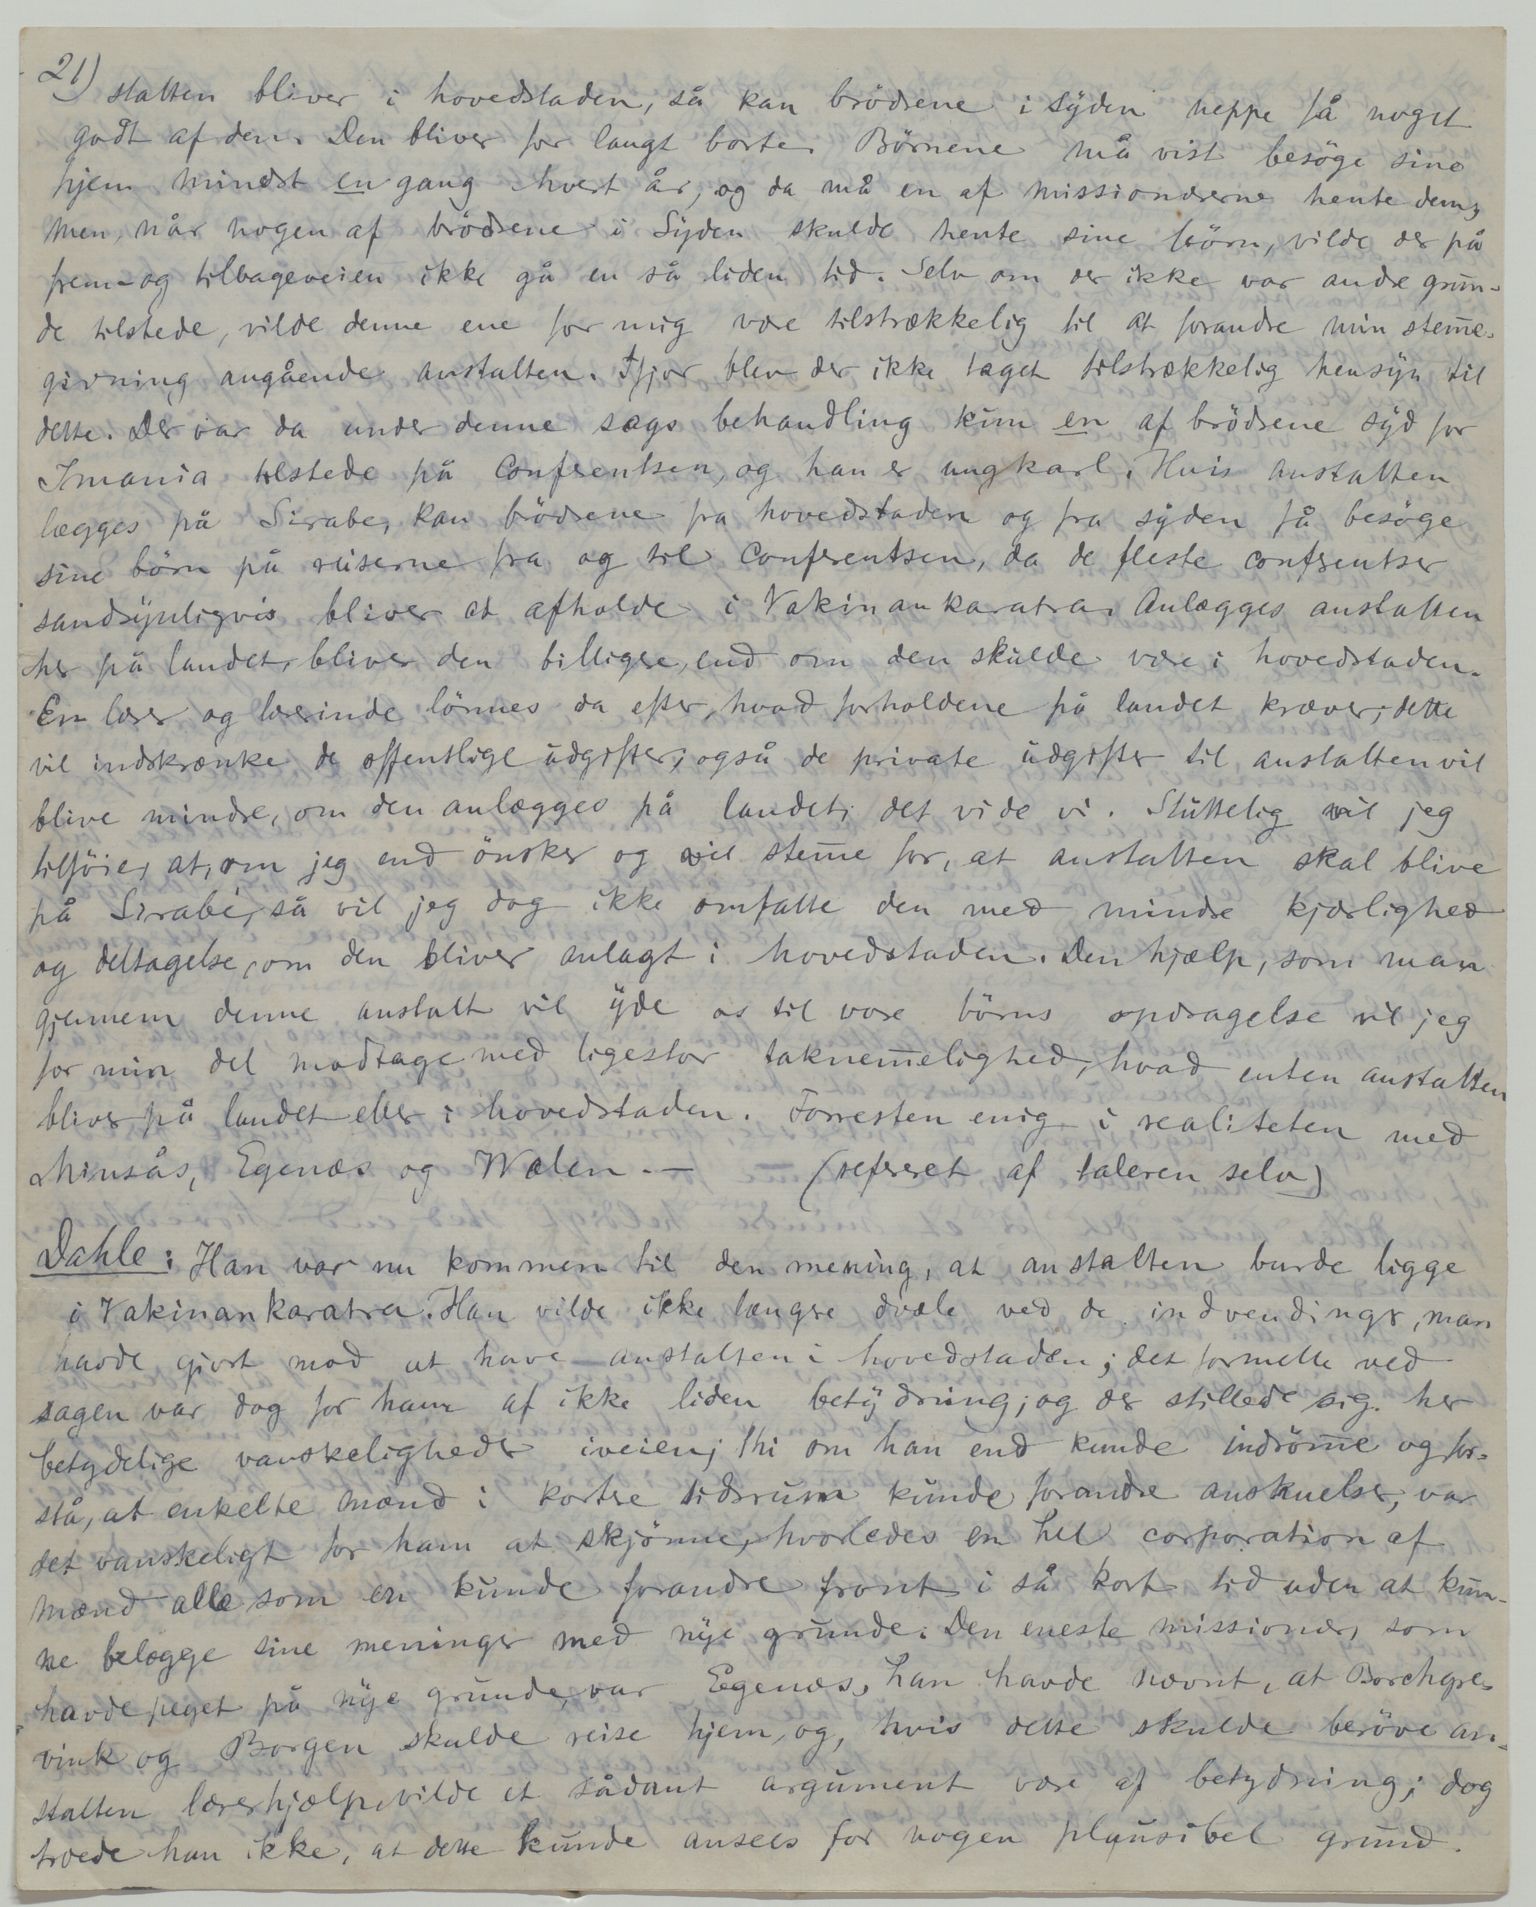 21)
stalten bliver i hovedstaden, så kan brödrene i Syden neppe få noget
godt af den. Den bliver for langt borte. Börnene må vist besöge sine
hjem mindst en gang hvert år, og da må en af missionærerne hente dem;
men, når nogen af brödrene i Syden skulde hente sine börn, vilde der på
frem- og tilbageveien ikke gå en så liden tid. Selv om der ikke var andre grun-
de tilstede, vilde denne ene for mig være tilstrækkelig til at forandre min stem̄e-
givning angående anstalten. Ifjor blev der ikke taget tilstrækkelig hensyn til
dette. Der var da under denne sags behandling kun en af brödrene syd for
Imania tilstede på Conferentsen, og han er ungkarl. Hvis anstalten
lægges på Sirabe, kan brödrene fra hovedstaden og fra syden få besöge
sine börn på reiserne fra og til Conferentsen, da de fleste conferentser
sandsynligvis bliver at afholde i Vakinankaratra. Anlægges anstalten
her på landet, bliver den billigere, end om den skulde være i hovedstaden.
En lærer og lærerinde lönnes da efter, hvad forholdene på landet kræver; dette
vil indskrænke de offentlige udgifter; også de private udgifter til anstalten vil
blive mindre, om den anlægges på landet; det vide vi. Sluttelig vil jeg
tilföie, at, om jeg end önsker og vil stem̄e for, at anstalten skal blive
på Sirabé, så vil jeg dog ikke omfatte den med mindre kjærlighed
og deltagelse, om den bliver anlagt i hovedstaden. Den hjælp, som man
gjennem denne anstalt vil yde os til vore börns opdragelse vil jeg
for min del modtage med ligestor taknem̄elighed, hvad enten anstalten
bliver på landet eller i hovedstaden. Forresten enig i realiteten med
Minsås, Egenæs og Wælen. — (refereret af taleren selv)
Dahle: Han var nu kommen til den mening, at anstalten burde ligge
i Vakinankaratra. Han vilde ikke længere dvæle ved de indvendinger, man
havde gjort mod at have anstalten i hovedstaden; det formelle ved
sagen var dog for ham af ikke liden betydning; og der stillede sig her
betydelige vanskeligheder iveien; thi om han end kunde indröm̄e og for-
stå, at enkelte mænd i kortere tidsrum kunde forandre anskuelse, var
det vanskeligt for ham at skjönne, hvorledes en hel corporation af
mænd alle som en kunde forandre front i så kort tid uden at kun-
ne belægge sine meninger med nye grunde. Den eneste missionær, som
havde peget på nye grunde, var Egenæs, han havde nævnt, at Borchgre-
vink og Borgen skulde reise hjem, og, hvis dette skulde berøve an-
stalten lærerhjælp, vilde et sådant argument være af betydning; dog
troede han ikke, at dette kunde ansees for nogen plausibel grund.